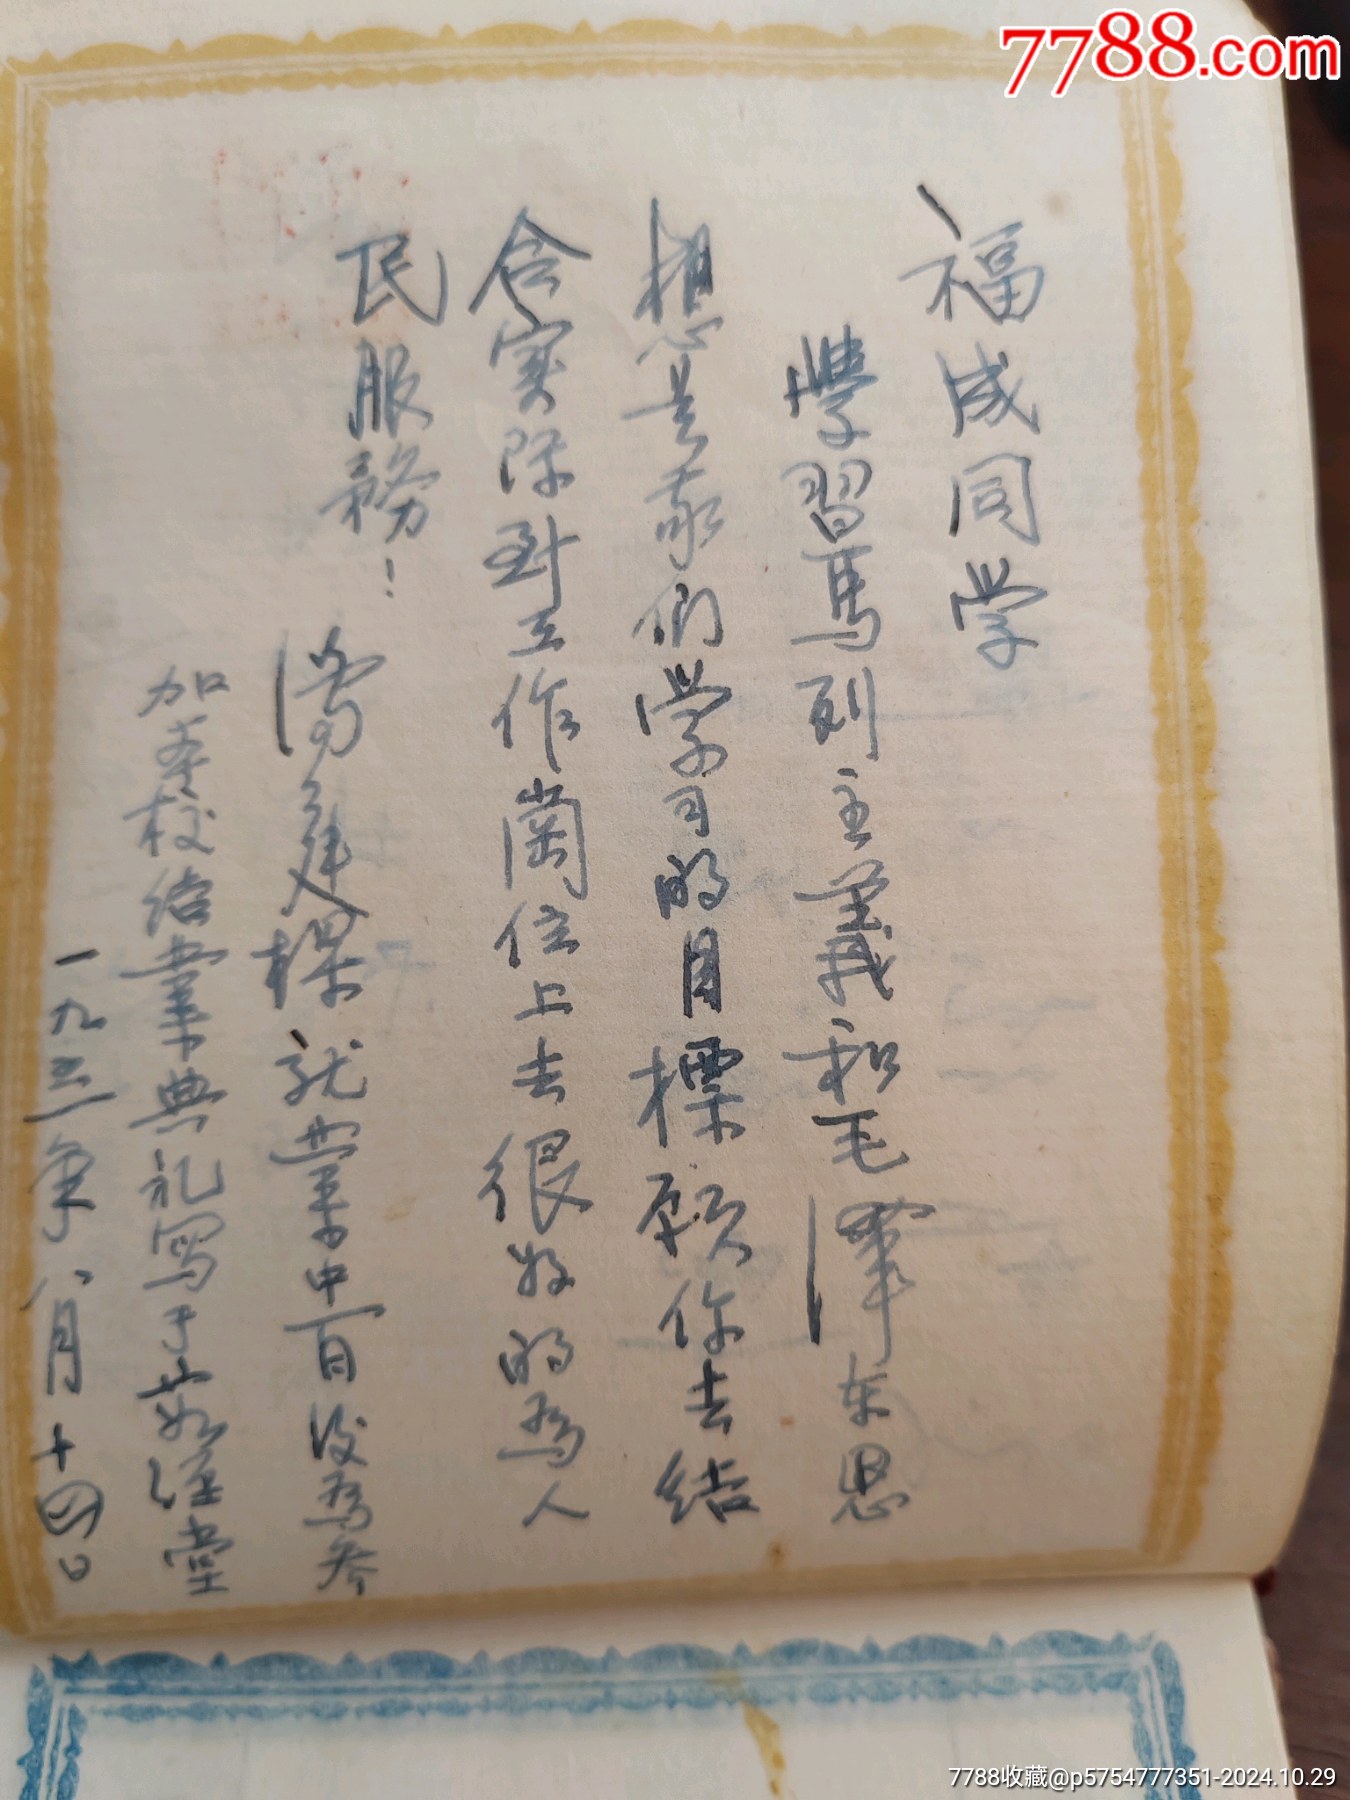 7788.com
福成同学
學習馬列主義和毛澤东思
想是我們学习的目標.願你去结
合实际到工作崗位上去很好的為人
民服務！
馮建樑就業中百後為参
加本校结業典礼写于礼堂
一九五一年八月十四日
7788收藏@p5754777351-2024.10.29